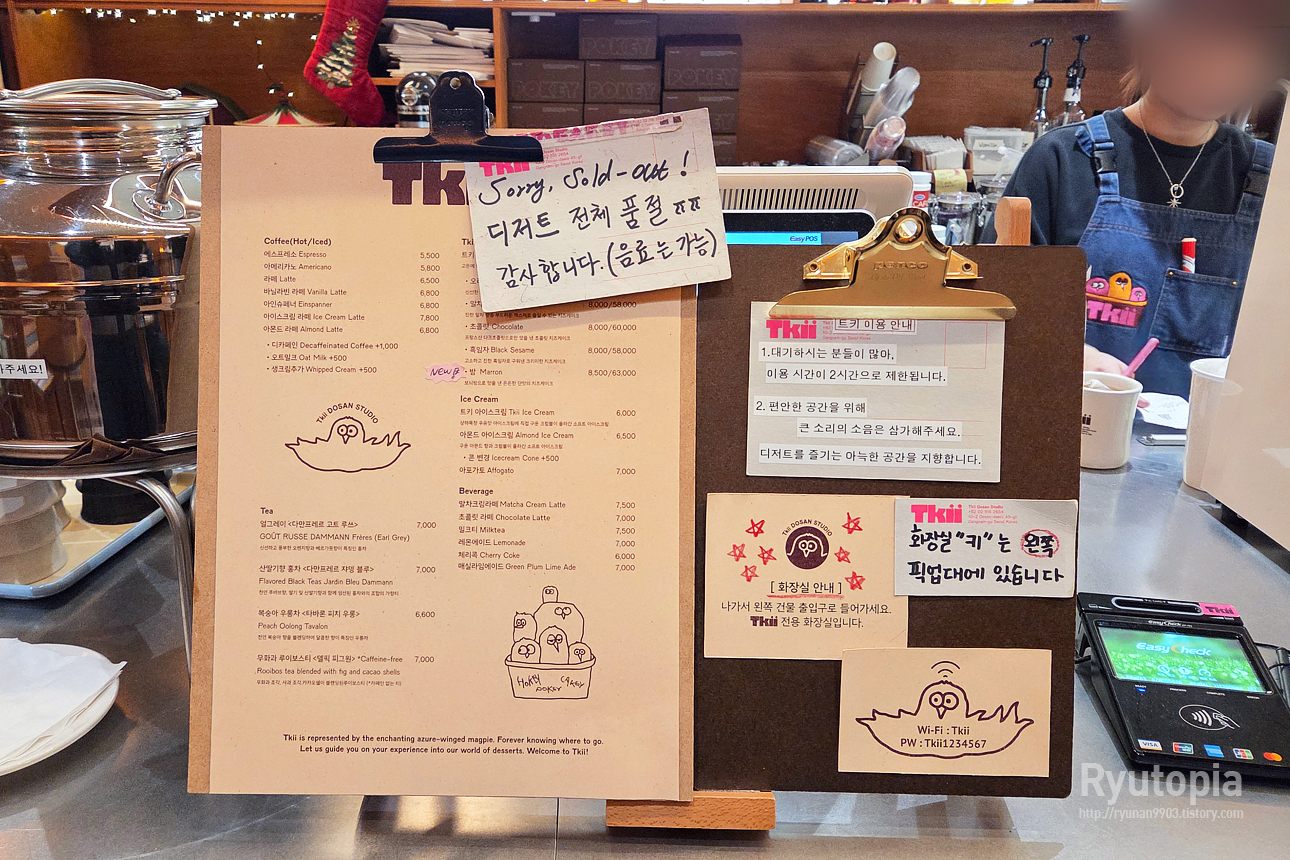 POKEY
POKEY
Tk
Sorry, Sold-out!
디저트 전체 품절 ㅠㅠ
감사합니다. (음료는 가능)
아주세요!
Coffee(Hot/Iced)
에스프레소 Espresso 5,500
아메리카노 Americano 5,800
라떼 Latte 6,500
바닐라빈 라떼 Vanilla Latte 6,800
아인슈페너 Einspanner 6,800
아이스크림 라떼 Ice Cream Latte 7,800
아몬드 라떼 Almond Latte 6,800
• 디카페인 Decaffeinated Coffee +1,000
• 오트밀크 Oat Milk +500
• 생크림추가 Whipped Cream +500
Tkii DOSAN STUDIO
Tea
얼그레이 <다만프레르 고트 루쓰> 7,000
GOÛT RUSSE DAMMANN Frères (Earl Grey)
산딸기향 홍차 <다만프레르 쟈뎅 블루> 7,000
Flavored Black Teas Jardin Bleu Dammann
복숭아 우롱차 <타바론 피치 우롱> 6,600
Peach Oolong Tavalon
무화과 루이보스티 <델픽 피그원> *Caffeine-free 7,000
Rooibos tea blended with fig and cacao shells
8,000/58,000
• 초콜릿 Chocolate 8,000/60,000
• 흑임자 Black Sesame 8,000/58,000
NEW
• 밤 Marron 8,500/63,000
Ice Cream
트키 아이스크림 Tkii Ice Cream 6,000
아몬드 아이스크림 Almond Ice Cream 6,500
• 콘 변경 Icecream Cone +500
아포가토 Affogato 7,000
Beverage
말차크림라떼 Matcha Cream Latte 7,500
초콜릿 라떼 Chocolate Latte 7,000
밀크티 Milktea 7,500
레몬에이드 Lemonade 7,000
체리콕 Cherry Coke 6,000
매실라임에이드 Green Plum Lime Ade 7,000
HOKEY POKEY
Tkii is represented by the enchanting azure-winged magpie. Forever knowing where to go.
Let us guide you on your experience into our world of desserts. Welcome to Tkii!
EasyPOS
penco
Tkii
트키 이용 안내
1.대기하시는 분들이 많아,
이용 시간이 2시간으로 제한됩니다.
2. 편안한 공간을 위해
큰 소리의 소음은 삼가해주세요.
디저트를 즐기는 아늑한 공간을 지향합니다.
Tkii DOSAN STUDIO
[ 화장실 안내 ]
나가서 왼쪽 건물 출입구로 들어가세요.
Tkii 전용 화장실입니다.
Tkii
Tkii Dosan Studio
화장실 "키"는 왼쪽
픽업대에 있습니다
Wi-Fi : Tkii
PW : Tkii1234567
Tkii
Tkii
EasyCheck
EasyCheck
VISA
Ryutopia
http://ryunan9903.tistory.com